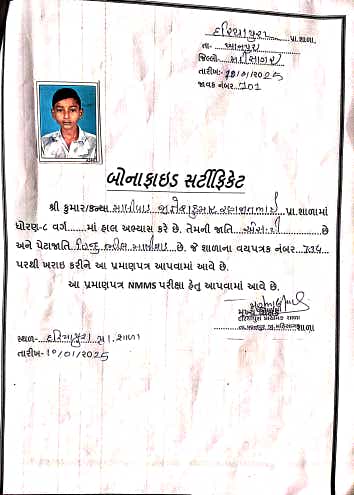 દરિયાપુરા પ્રા.શાળા
તા- ખાનપુર
જિલ્લો- મહીસાગર
તારીખ:- 10/01/2025
જાવક નંબર.. 701
બોનાફાઇડ સર્ટીફિકેટ
શ્રી કુમાર/કન્યા માલીવાડ પ્રા.શાળામાં
ધોરણ-૮ વર્ગ માં હાલ અભ્યાસ કરે છે. તેમની જાતિ એસ.ટી છે
અને પેટાજાતિ હિન્દુ ભીલ માલીવાડ છે. જે શાળાના વયપત્રક નંબર
પરથી ખરાઇ કરીને આ પ્રમાણપત્ર આપવામાં આવે છે.
આ પ્રમાણપત્ર NMMS પરીક્ષા હેતુ આપવામાં આવે છે.
મુખ્ય શિક્ષક
દરિયાપુરા પ્રાથમિક શાળા
સ્થળ:- દરિયાપુરા પ્રા. શાળા તા.ખાનપુર જી.મહિસાગર શાળા
તારીખ:- 10/01/2025